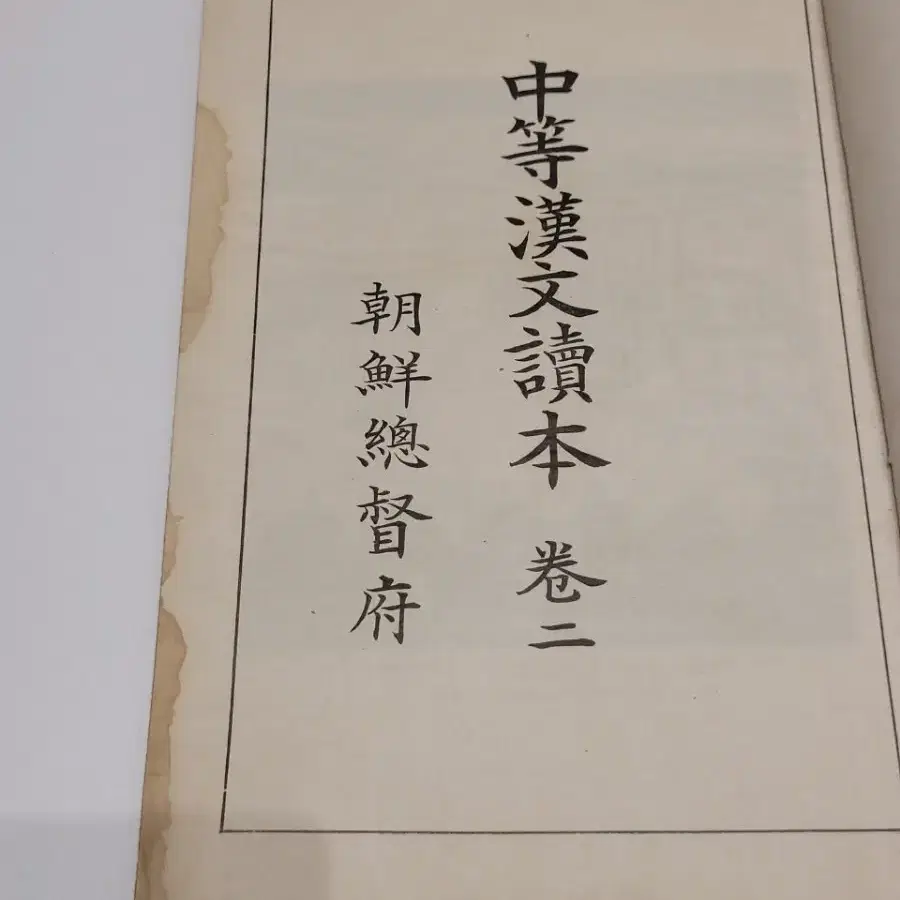 中等漢文讀本 卷二
朝鮮總督府